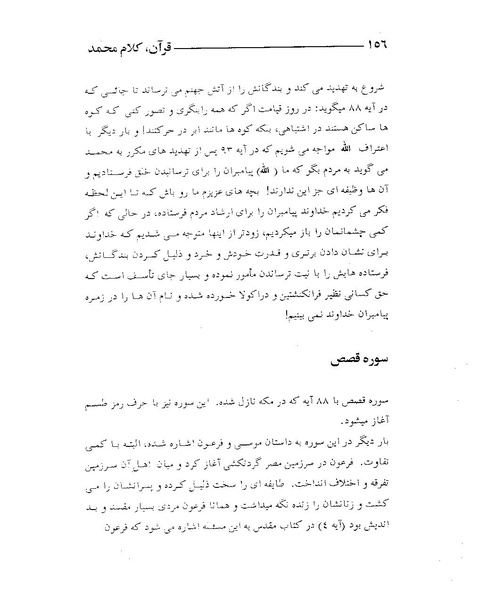 ۱۵۶ قرآن، کلام محمد
شروع به تهدید می کند و بندگانش را از آتش جهنم می ترساند تا جائی که
در آیه ۸۸ میگوید: در روز قیامت اگر که همه را بنگری و تصور کنی که کوه
ها ساکن هستند در اشتباهی، بلکه کوه ها مانند ابر در حرکتند! و بار دیگر با
اعتراف الله مواجه می شویم که در آیه ۹۳ پس از تهدید های مکرر به محمد
می گوید به مردم بگو که ما (الله) پیامبران را برای ترسانیدن خلق فرستادیم و
آن ها وظیفه ای جز این ندارند! بچه های عزیزم ما رو باش که تا این لحظه
فکر می کردیم خداوند پیامبران را برای ارشاد مردم فرستاده، در حالی که اگر
کمی چشمانمان را باز میکردیم، زودتر از اینها متوجه می شدیم که خداوند
برای نشان دادن برتری و قدرت خودش و خرد و ذلیل کردن بندگانش،
فرستاده هایش را با نیت ترساندن مأمور نموده و بسیار جای تأسف است که
حق کسانی نظیر فرانکنشتین و دراکولا خورده شده و نام آن ها را در زمره
پیامبران خداوند نمی بینیم!
سوره قصص
سوره قصص با ۸۸ آیه که در مکه نازل شده. این سوره نیز با حرف رمز طسم
آغاز میشود.
بار دیگر در این سوره به داستان موسی و فرعون اشاره شده، البته با کمی
تفاوت. فرعون در سرزمین مصر گردنکشی آغاز کرد و میان اهل آن سرزمین
تفرقه و اختلاف انداخت. طایفه ای را سخت ذلیل کرده و پسرانشان را می
کشت و زنانشان را زنده نگه میداشت و همانا فرعون مردی بسیار مفسد و بد
اندیش بود (آیه ۴) در کتاب مقدس به این مسئله اشاره می شود که فرعون